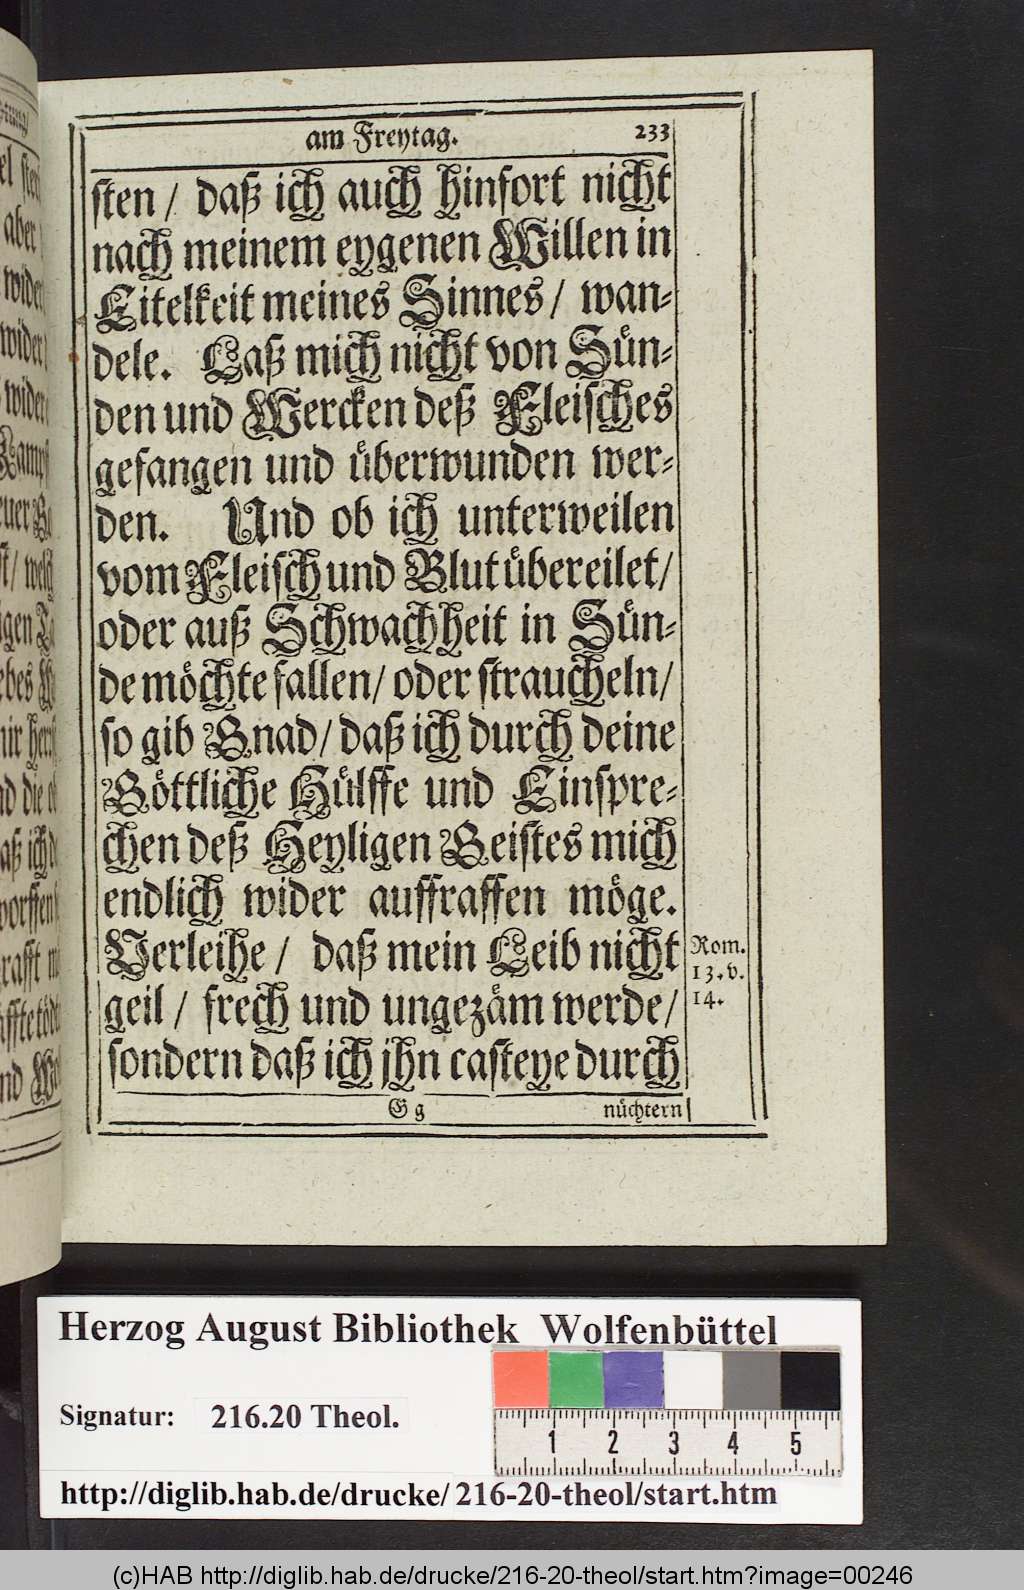 am Freytag. 233
sten / daß ich auch hinfort nicht
nach meinem eygenen Willen in
Eitelkeit meines Sinnes / wan-
dele. Laß mich nicht von Sün-
den und Wercken deß Fleisches
gefangen und überwunden wer-
den. Und ob ich unterweilen
vom Fleisch und Blut übereilet /
oder auß Schwachheit in Sün-
de möchte fallen / oder straucheln /
so gib Gnad / daß ich durch deine
Göttliche Hülffe und Einspre-
chen deß Heyligen Geistes mich
endlich wider auffraffen möge.
Verleihe / daß mein Leib nicht
geil / frech und ungezäm werde /
sondern daß ich jhn casteye durch
Rom.
13. v.
14.
G g nüchtern
aber
wider
wider
wider
Herzog August Bibliothek Wolfenbüttel
Signatur: 216.20 Theol.
1 2 3 4 5
http://diglib.hab.de/drucke/216-20-theol/start.htm
(c)HAB http://diglib.hab.de/drucke/216-20-theol/start.htm?image=00246